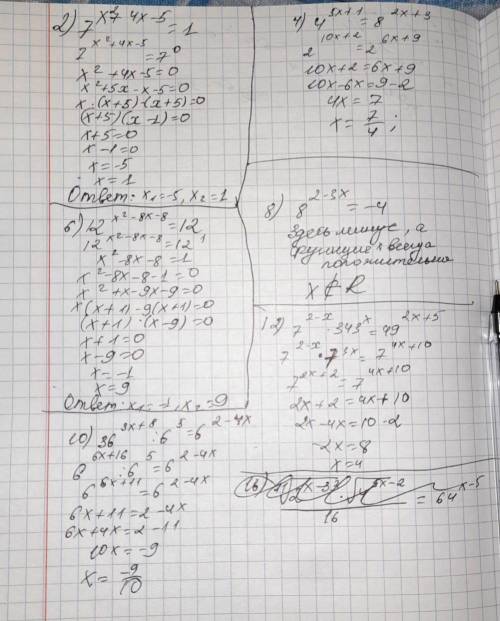 2) 7^(x²+4x-5) = 1
7^(x²+4x-5) = 7⁰
x²+4x-5=0
x²+5x-x-5=0
x·(x+5)·(x+5)=0
(x+5)(x-1)=0
x+5=0
x-1=0
x=-5
x=1
Ответ: x₁=-5, x₂=1
6) 12^(x²-8x-8) = 12
12^(x²-8x-8) = 12¹
x²-8x-8=1
x²-8x-8-1=0
x²+x-9x-9=0
x(x+1)-9(x+1)=0
(x+1)·(x-9)=0
x+1=0
x-9=0
x=-1
x=9
Ответ: x₁=-1, x₂=9
10) 36^(3x+8) : 6⁵ = 6^(2-4x)
6^(6x+16) : 6⁵ = 6^(2-4x)
6^(6x+11) = 6^(2-4x)
6x+11=2-4x
6x+4x=2-11
10x=-9
x = -9/10
4) 4^(5x+1) = 8^(2x+3)
2^(10x+2) = 2^(6x+9)
10x+2=6x+9
10x-6x=9-2
4x=7
x = 7/4;
8) 8^(2-3x) = -4
Здесь минус, а
функция всегда
положительна
x ∉ R
12) 7^(2-x) · 343^x = 49^(2x+5)
7^(2-x) · 7^(3x) = 7^(4x+10)
7^(2x+2) = 7^(4x+10)
2x+2=4x+10
2x-4x=10-2
-2x=8
x=4
16) = 64^(x-5)
16